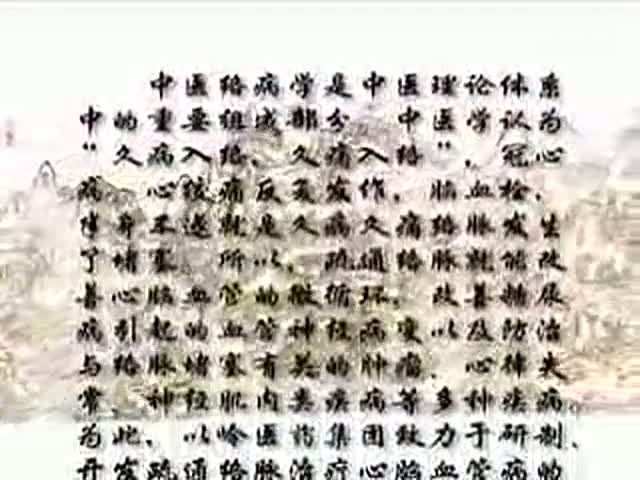 中医络病学是中医理论体系
中的重要组成部分 中医学认为
“久病入络、久痛入络”，冠心
病、心绞痛反复发作，脑血栓、
偏身不遂就是久病久痛络脉发生
了堵塞。所以，疏通络脉就能改
善心脑血管的微循环，改善糖尿
病引起的血管神经病变以及防治
与络脉堵塞有关的肿瘤、心律失
常、神经肌肉类疾病等多种疾病
为此，以岭医药集团致力于研制、
开发疏通络脉治疗心脑血管病的